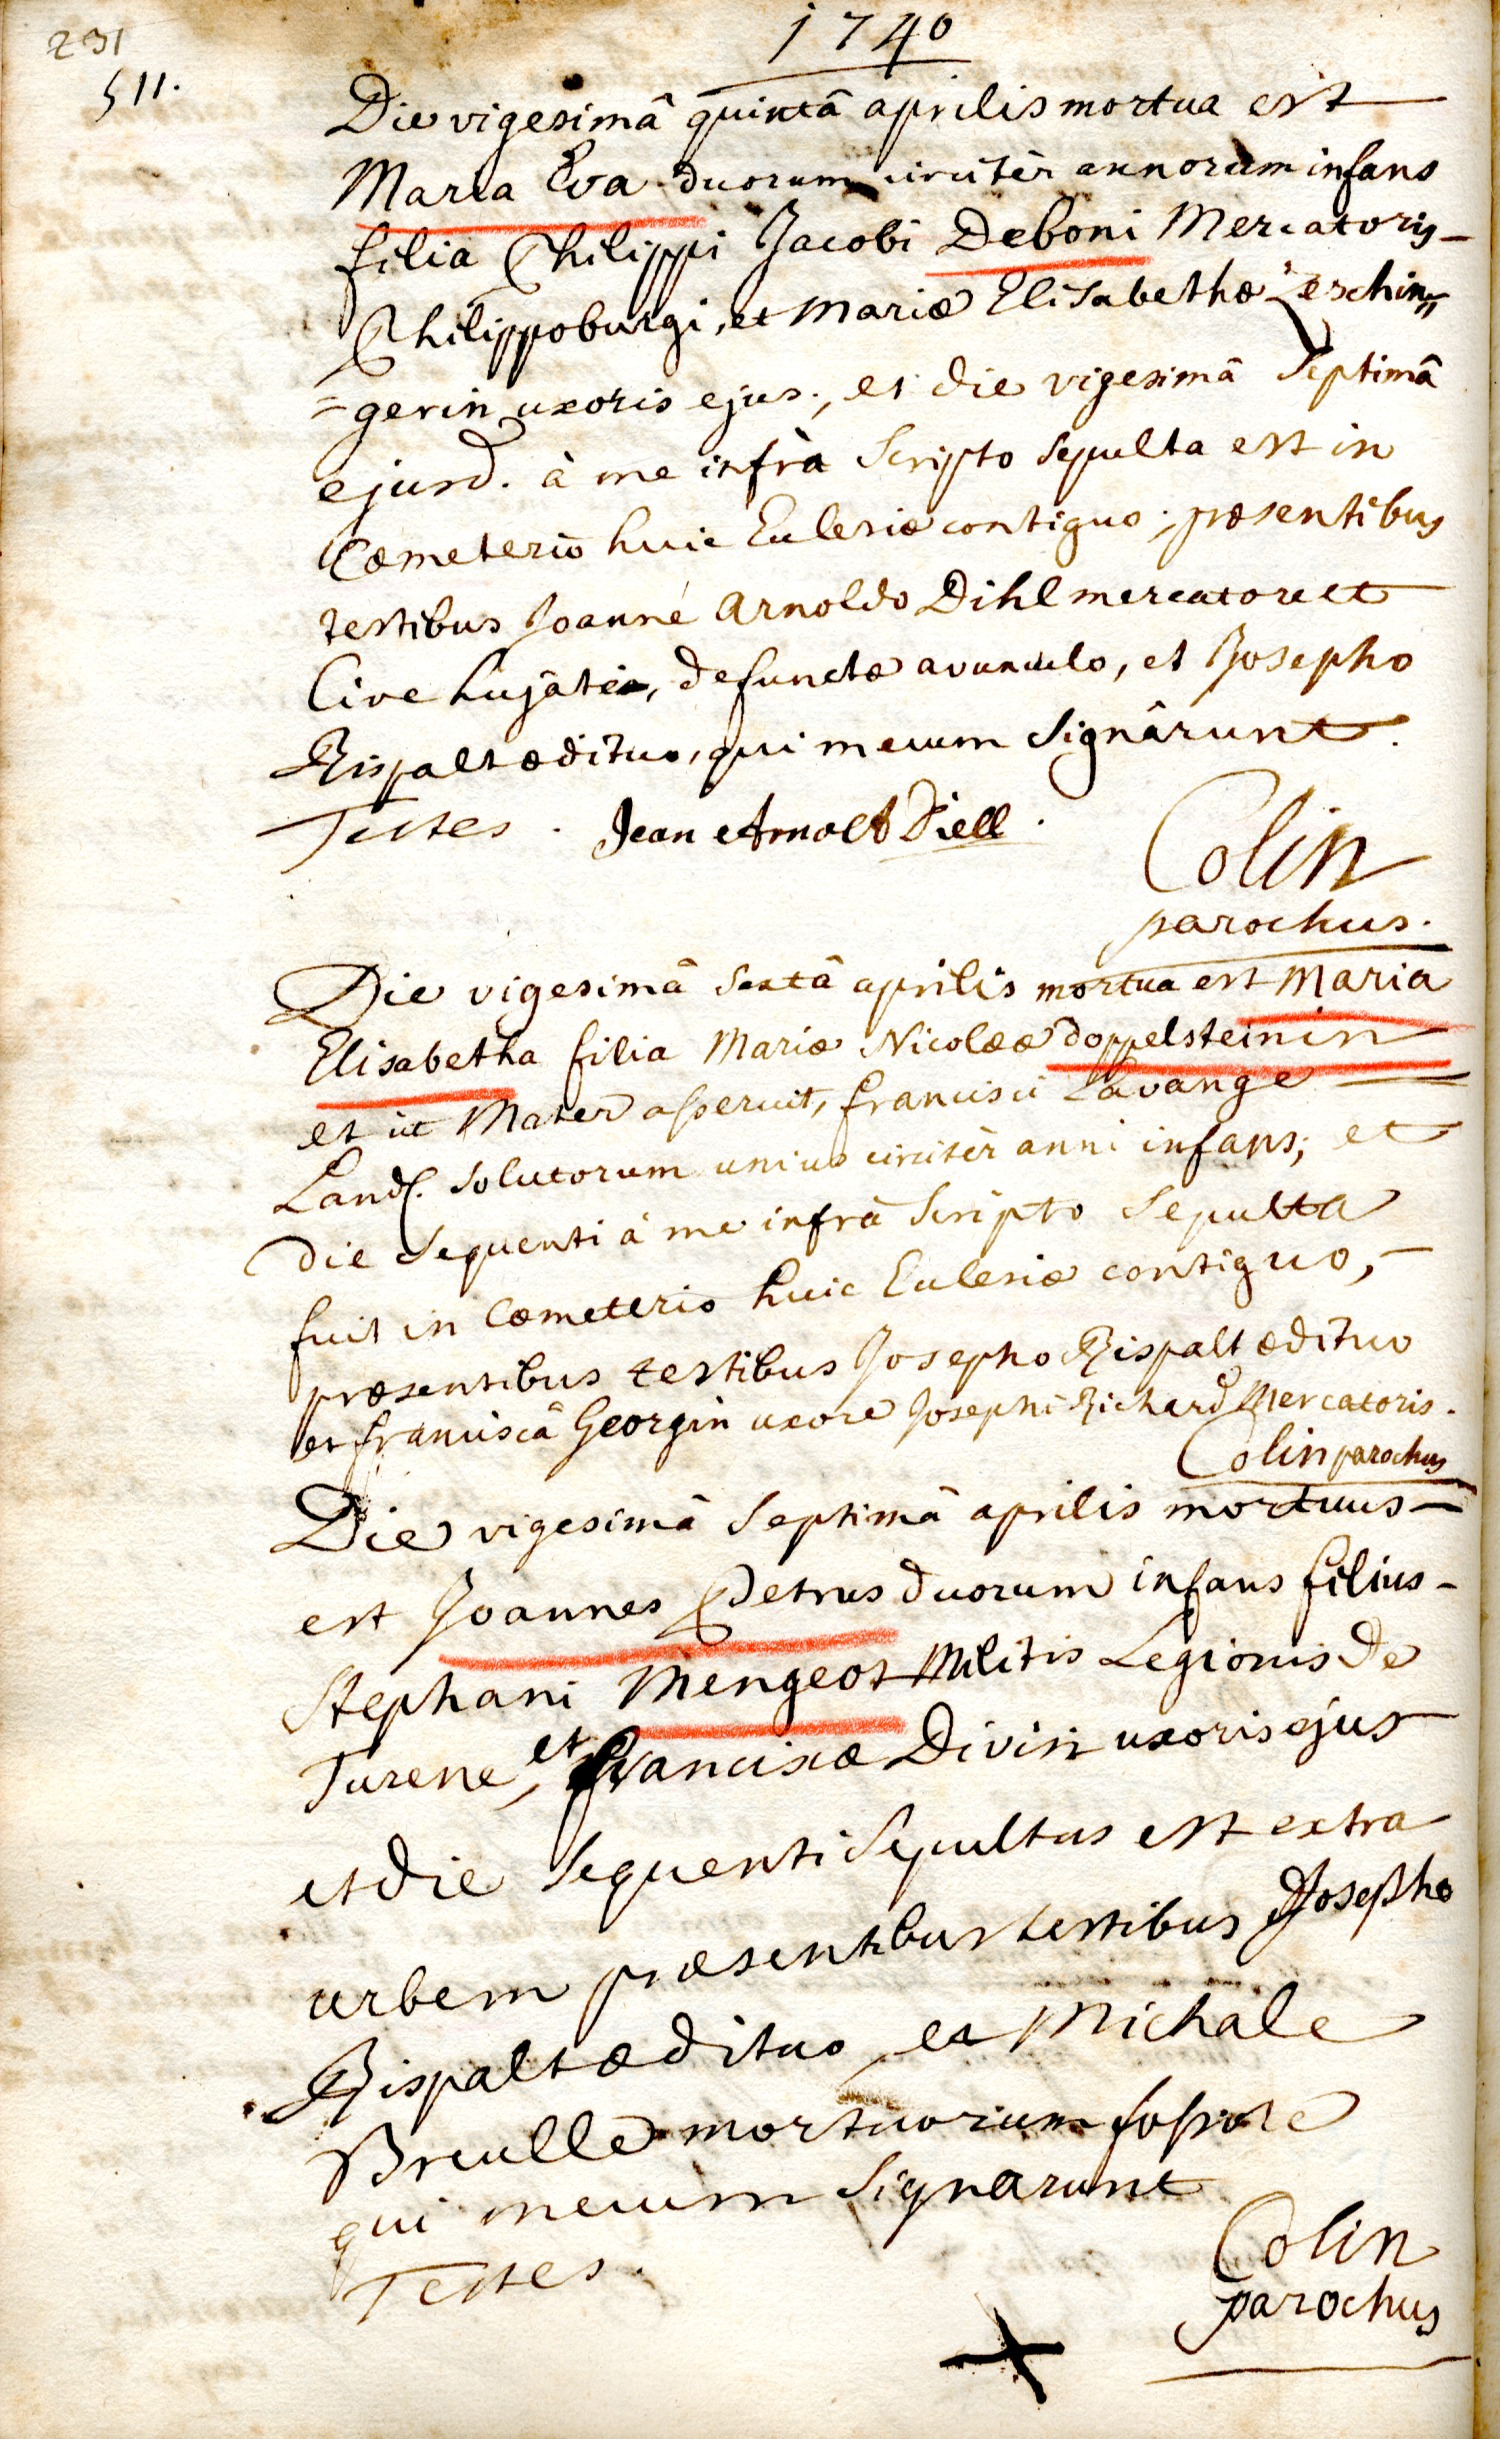 231
511.
1740
Die vigesimâ quintâ aprilis mortua est
Maria Eva duorum circitèr annorum infans
filia Philippi Jacobi Deboni Mercatoris
Philippoburgi, et Mariæ Elisabethæ Zeschin,,
=gerin uxoris ejus., et die vigesimâ Septimâ
ejusd. à me infrà Scripto Sepulta est in
Cœmeterio huic Ecclesiæ contiguo; præsentibus
testibus Joanne Arnoldo Dihl mercatore et
Cive hujate, defunctæ avunculo, et Josepho
Rispalt ædituo, qui mecum Signârunt.
Testes. Jean Arnolt Diell.
Colin
parochus.
Die vigesimâ Sextâ aprilis mortua est Maria
Elisabetha filia Mariæ Nicolææ doppelsteinin
et ut Mater asseruit, francisci Lavange
Land. Solutorum unius circitèr anni infans; et
die Sequenti à me infrà Scripto Sepulta
fuit in Cœmeterio huic Ecclesiæ contiguo,
præsentibus testibus Josepho Rispalt ædituo
et franciscâ Georgin uxore Josephi Richard Mercatoris.
Colin parochus
Die vigesimâ Septimâ aprilis mortuus
est Joannes Petrus duorum infans filius
Stephani Mengeot Militis Legionis de
Turene, et franciscæ Divin uxoris ejus
et die Sequenti Sepultus est extra
urbem præsentibus testibus Josepho
Rispalt ædituo et Michale
Breulle mortuorum fossore
qui mecum Signarunt
Testes.
Colin
parochus